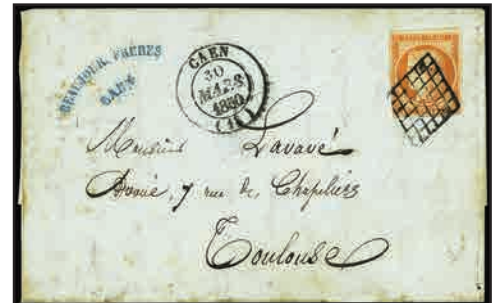 BEAUJOUR, FRERES
CAEN
CAEN
30
MARS
1850
(13)
Monsieur Lavavé
Avoué, 7 rue des Chapeliers
Toulouse